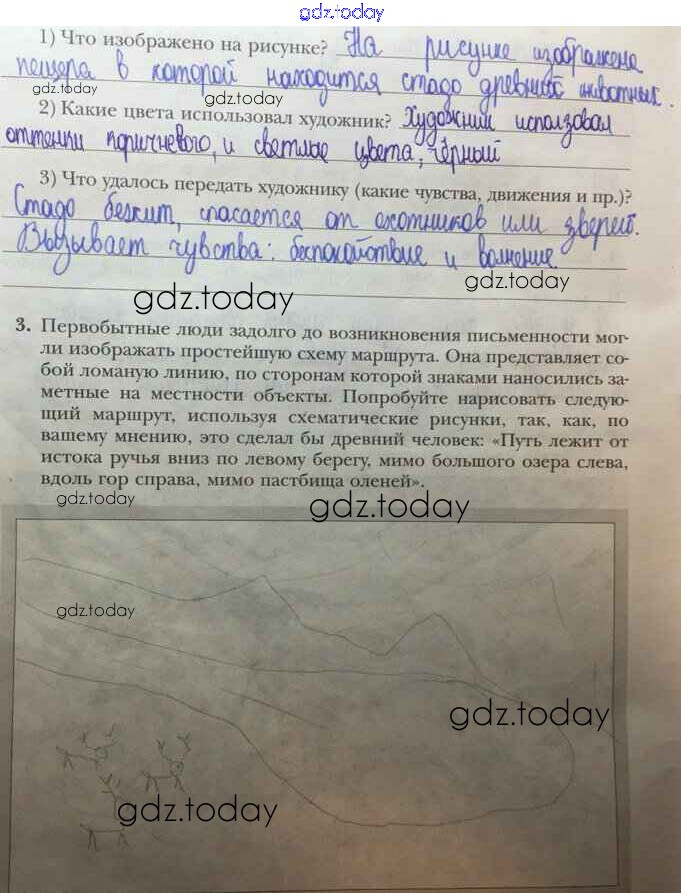 gdz.today
1) Что изображено на рисунке? На рисунке изображена
пещера в которой находится стадо древних животных.
gdz.today
2) Какие цвета использовал художник? Художник исползовал
оттенки коричневого, и светлые цвета, чёрный
3) Что удалось передать художнику (какие чувства, движения и пр.)?
Стадо бежит, спасается от охотников или зверей.
Вызывает чувства: беспокойствие и волнение
gdz.today
gdz.today
3. Первобытные люди задолго до возникновения письменности мог-
ли изображать простейшую схему маршрута. Она представляет со-
бой ломаную линию, по сторонам которой знаками наносились за-
метные на местности объекты. Попробуйте нарисовать следую-
щий маршрут, используя схематические рисунки, так, как, по
вашему мнению, это сделал бы древний человек: «Путь лежит от
истока ручья вниз по левому берегу, мимо большого озера слева,
вдоль гор справа, мимо пастбища оленей».
gdz.today
gdz.today
gdz.today
gdz.today
gdz.today